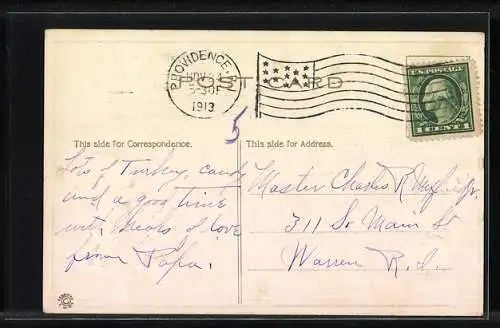 PROVIDENCE, R.I.
NOV 24
5-30P
1913
POST CARD
U.S. POSTAGE
1 CENT 1
5
This side for Correspondence.
This side for Address.
Lots of Turkey, candy
and a good time
with heaps of love
from Papa.
Master Charles R.
311 So Main St
Warren R.I.